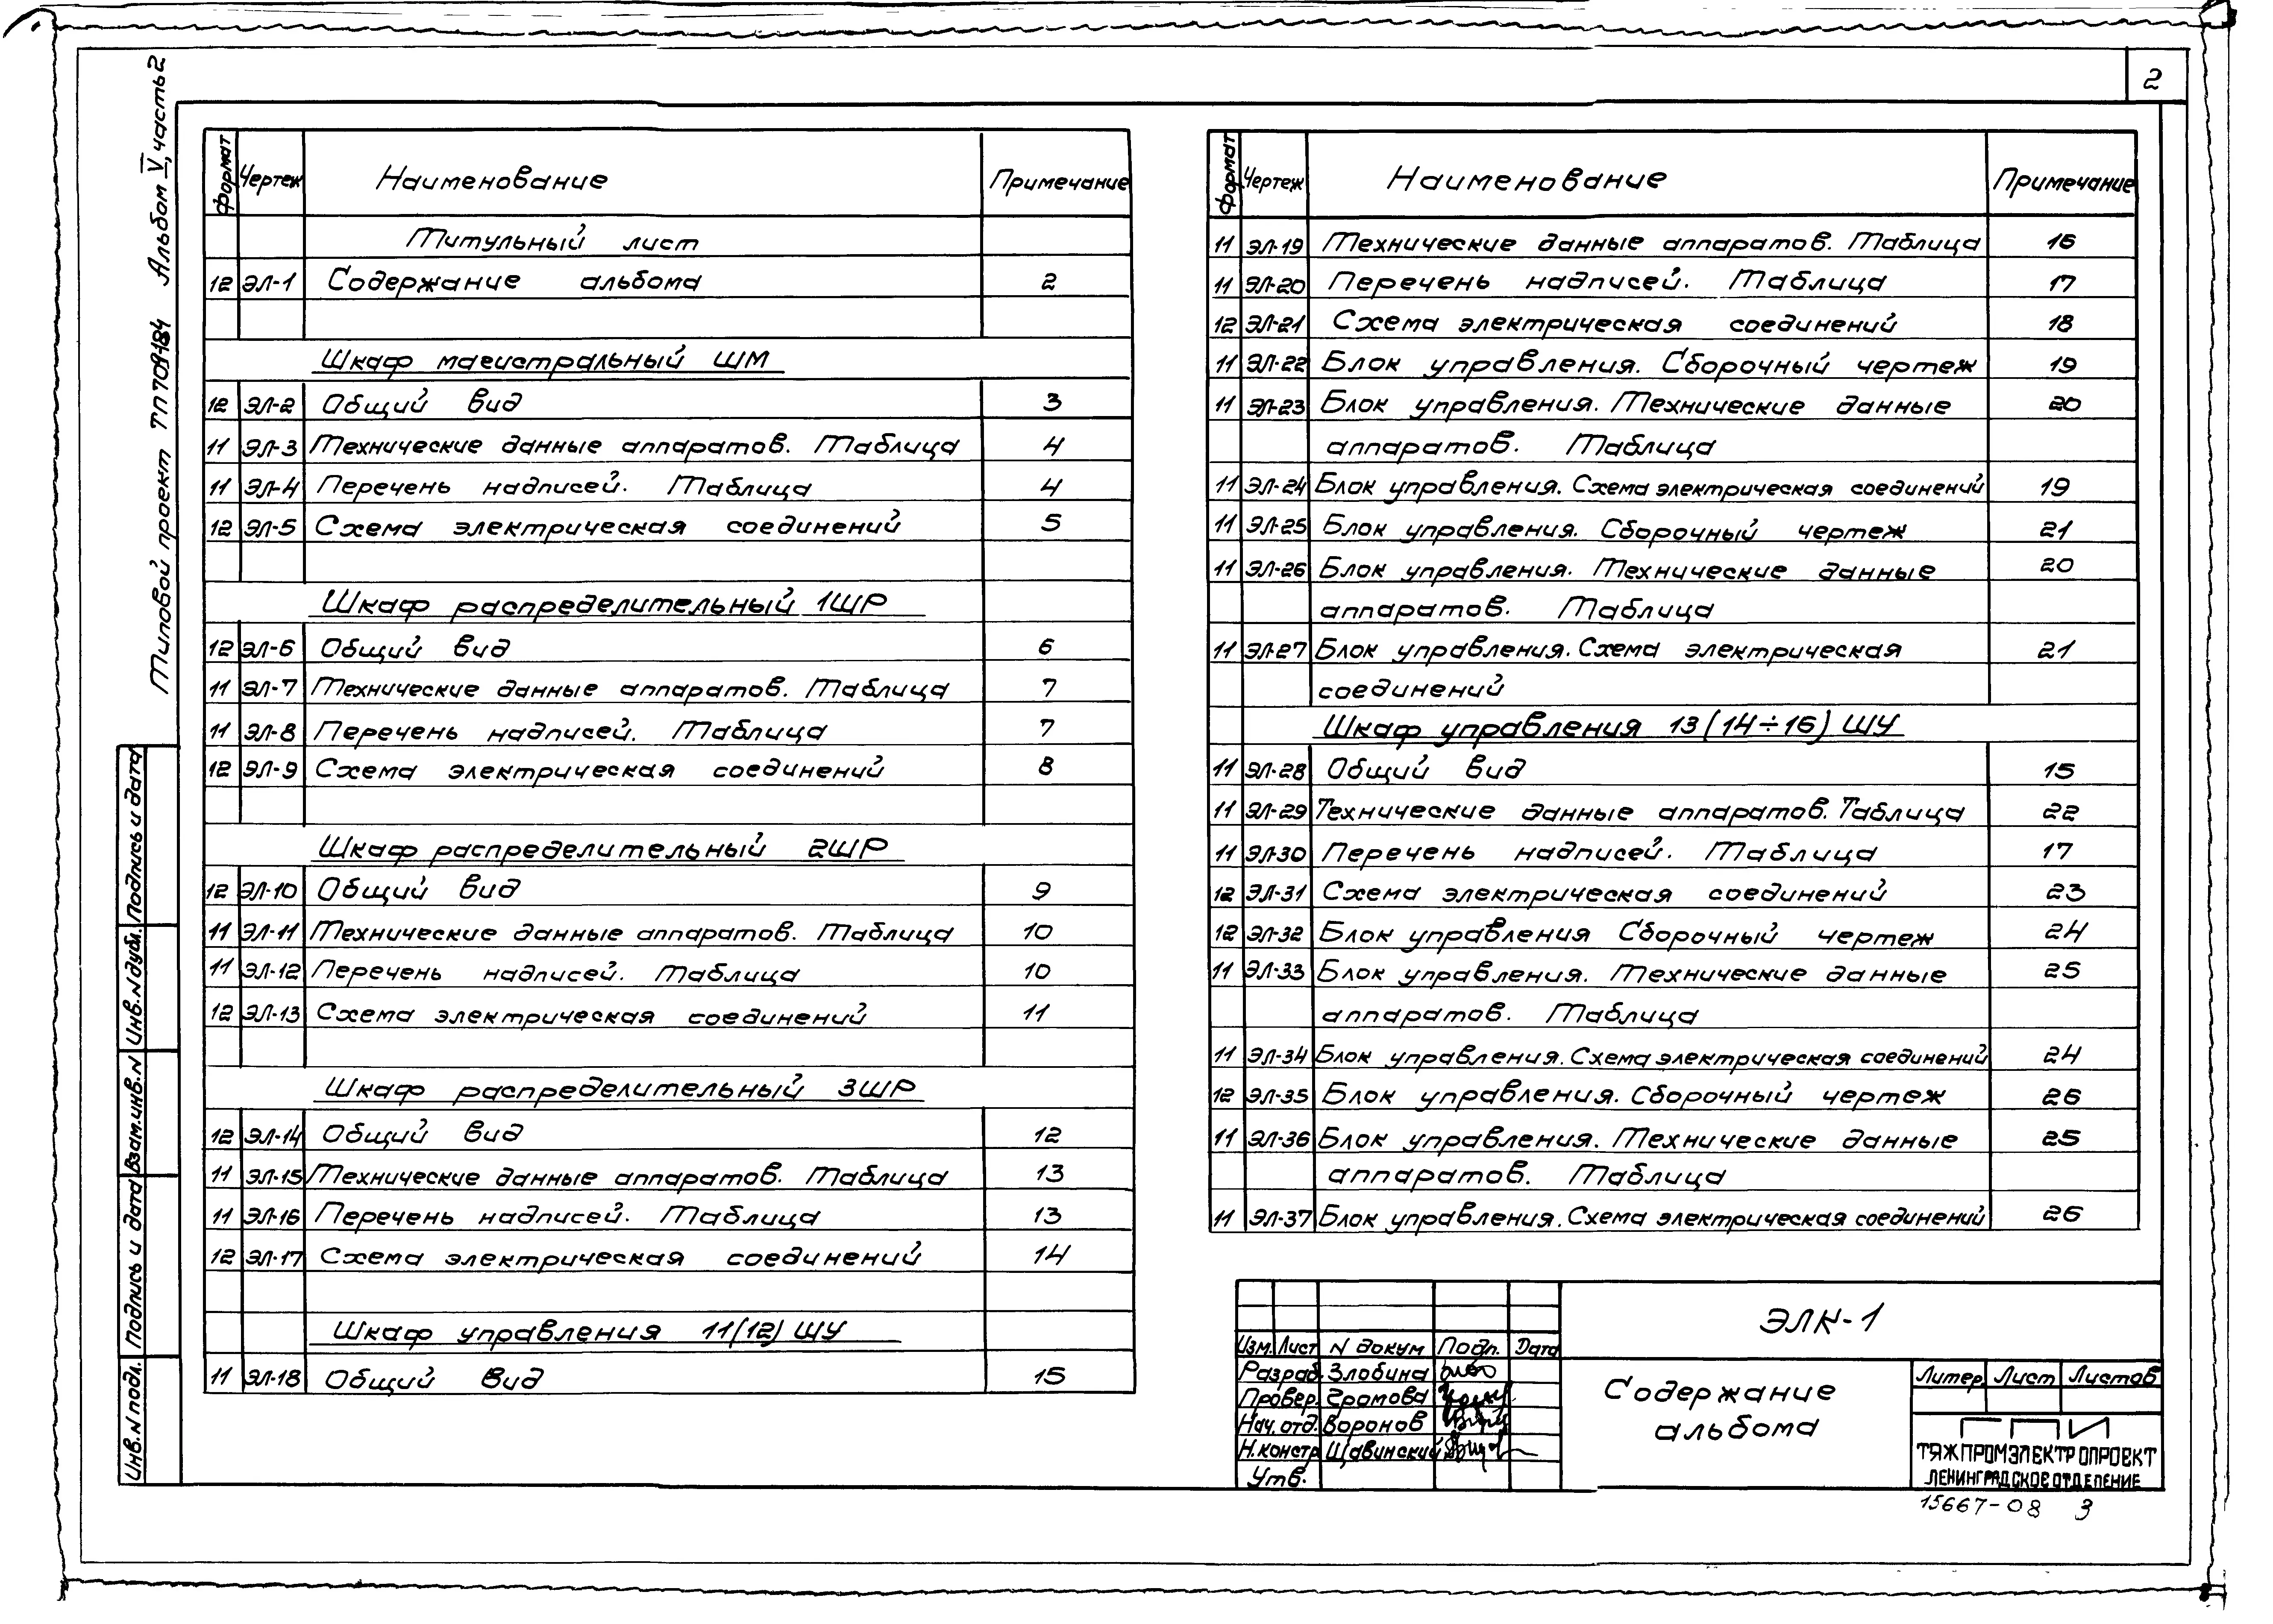 2
Типовой проект ТП 709-184 Альбом V, часть 2
Формат Чертеж Наименование Примечание
Титульный лист
12 ЭЛ-1 Содержание альбома 2
Шкаф магистральный ШМ
12 ЭЛ-2 Общий вид 3
11 ЭЛ-3 Технические данные аппаратов. Таблица 4
11 ЭЛ-4 Перечень надписей. Таблица 4
12 ЭЛ-5 Схема электрическая соединений 5
Шкаф распределительный 1ШР
12 ЭЛ-6 Общий вид 6
11 ЭЛ-7 Технические данные аппаратов. Таблица 7
11 ЭЛ-8 Перечень надписей. Таблица 7
12 ЭЛ-9 Схема электрическая соединений 8
Шкаф распределительный 2ШР
12 ЭЛ-10 Общий вид 9
11 ЭЛ-11 Технические данные аппаратов. Таблица 10
11 ЭЛ-12 Перечень надписей. Таблица 10
12 ЭЛ-13 Схема электрическая соединений 11
Шкаф распределительный 3ШР
12 ЭЛ-14 Общий вид 12
11 ЭЛ-15 Технические данные аппаратов. Таблица 13
11 ЭЛ-16 Перечень надписей. Таблица 13
12 ЭЛ-17 Схема электрическая соединений 14
Шкаф управления 11(12) ШУ
11 ЭЛ-18 Общий вид 15
Формат Чертеж Наименование Примечание
11 ЭЛ-19 Технические данные аппаратов. Таблица 16
11 ЭЛ-20 Перечень надписей. Таблица 17
12 ЭЛ-21 Схема электрическая соединений 18
11 ЭЛ-22 Блок управления. Сборочный чертеж 19
11 ЭЛ-23 Блок управления. Технические данные 20
аппаратов. Таблица
11 ЭЛ-24 Блок управления. Схема электрическая соединений 19
11 ЭЛ-25 Блок управления. Сборочный чертеж 21
11 ЭЛ-26 Блок управления. Технические данные 20
аппаратов. Таблица
11 ЭЛ-27 Блок управления. Схема электрическая 21
соединений
Шкаф управления 13(14÷16) ШУ
11 ЭЛ-28 Общий вид 15
11 ЭЛ-29 Технические данные аппаратов. Таблица 22
11 ЭЛ-30 Перечень надписей. Таблица 17
12 ЭЛ-31 Схема электрическая соединений 23
12 ЭЛ-32 Блок управления Сборочный чертеж 24
11 ЭЛ-33 Блок управления. Технические данные 25
аппаратов. Таблица
11 ЭЛ-34 Блок управления. Схема электрическая соединений 24
12 ЭЛ-35 Блок управления. Сборочный чертеж 26
11 ЭЛ-36 Блок управления. Технические данные 25
аппаратов. Таблица
11 ЭЛ-37 Блок управления. Схема электрическая соединений 26
Инв. N подл. Подпись и дата Взам. инв. N Инв. N дубл. Подпись и дата
Изм. Лист N докум Подп. Дата
Разраб. Злобина
Провер. Громова
Нач. отд. Воронов
Н. констр. Щавинский
Утв.
ЭЛК-1
Содержание
альбома
Литер. Лист Листов
ГПИ
ТЯЖПРОМЭЛЕКТРОПРОЕКТ
ЛЕНИНГРАДСКОЕ ОТДЕЛЕНИЕ
15667-08 3